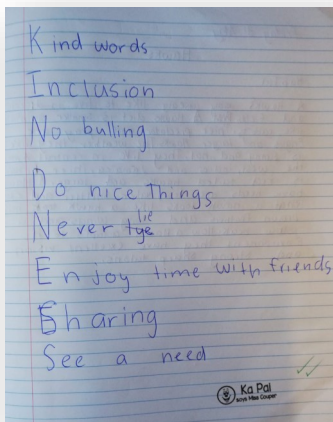 Kind words
Inclusion
No bulling
Do nice Things
lie
Never tye
Enjoy time with friends
Sharing
See a need
Ka Pai
says Miss Couper